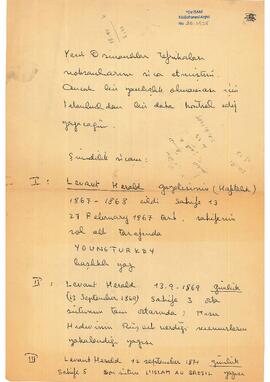 Yeni Osmanlılar Tefrikaları
noksanlarını rica etmiştim.
Ancak bir yanlışlık olmaması için
İstanbuldan bir daha kontrol edip
yazacağım.
Şimdilik ricam:
I : Levant Herald gazetesinin (Haftalık)
1867-1868 cildi Sahife 13
27 February 1867 tarihli sahifenin
sol alt tarafında
YOUNG TURKEY
başlıklı yazı
II : Levant Herald 13.9.1869 günlük
(13 September 1869) Sahife 3 orta
sütunun tam ortasında : Mısır
Hidivinin verdiği
yakalandığı yazısı
III Levant Herald 12 September 1871 günlük
Sahife 5 Son sütun L'ISLAM AU BRESIL yazısı